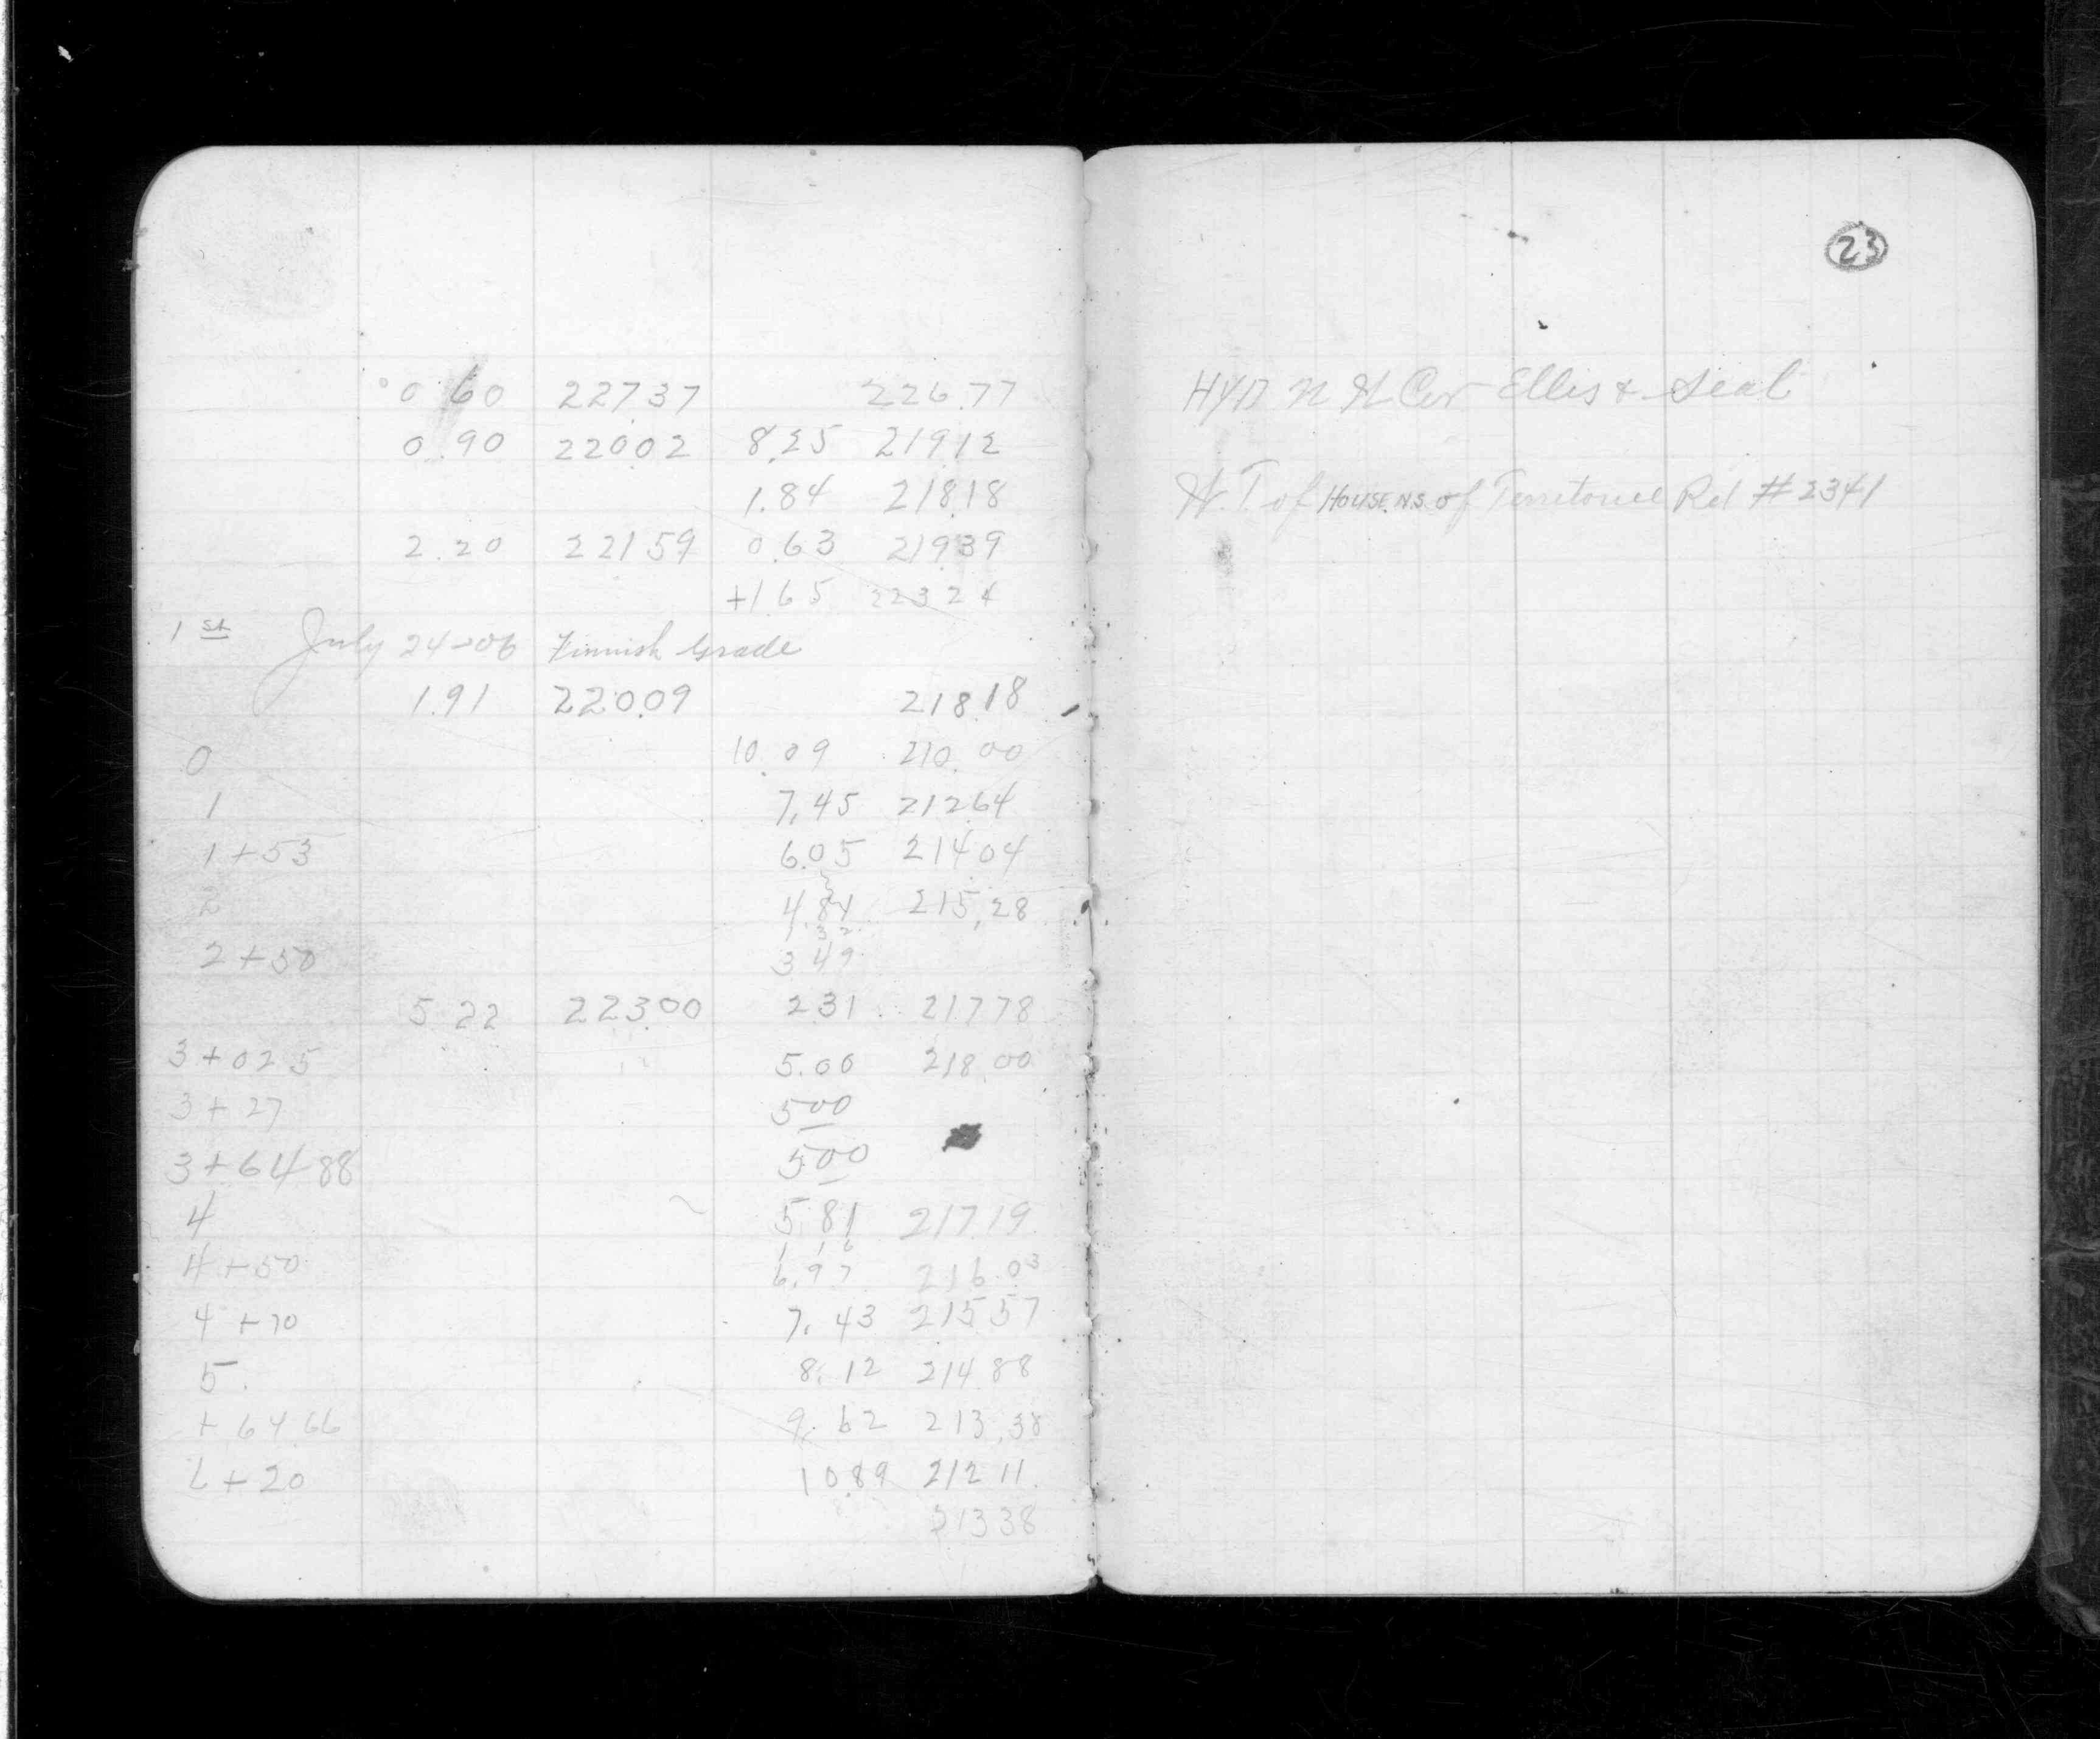 0.60 227.37 226.77
0.90 220.02 8.25 219.12
1.84 218.18
2.20 221.59 0.63 219.39
+1.65 223.24
1st July 24-06 Finnish Grade
1.91 220.09 218.18
0 10.09 210.00
1 7.45 212.64
1+53 6.05 214.04
2 4.81 215.28
2+50 3.49
5.22 223.00 2.31 217.78
3+02.5 5.00 218.00
3+27 5.00
3+64.88 5.00
4 5.81 217.19
1 16
4+50 6.97 216.03
4+70 7.43 215.57
5 8.12 214.88
+64.66 9.62 213.38
+20 10.89 212.11
213.38
23
HYD Cor Ellis & Seal
W.T. of HOUSE N.S. of Territorial Rd #2341